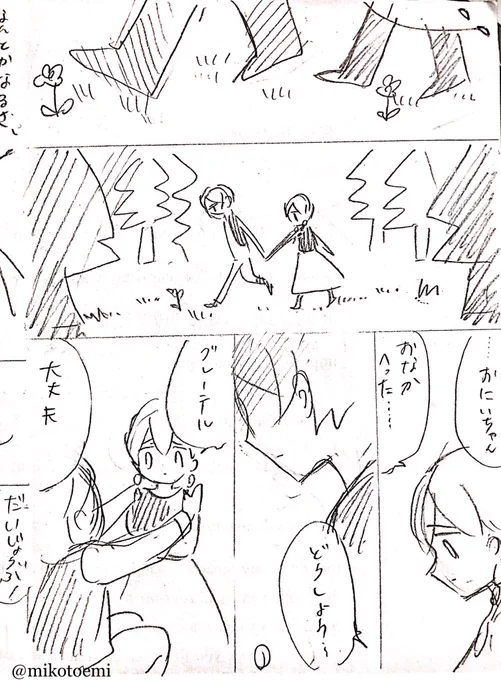 おにいちゃん
おなか
へった……
どうしよう…
グレーテル
大丈夫
だいじょうぶ!
なんとかなるさ、
@mikotoemi